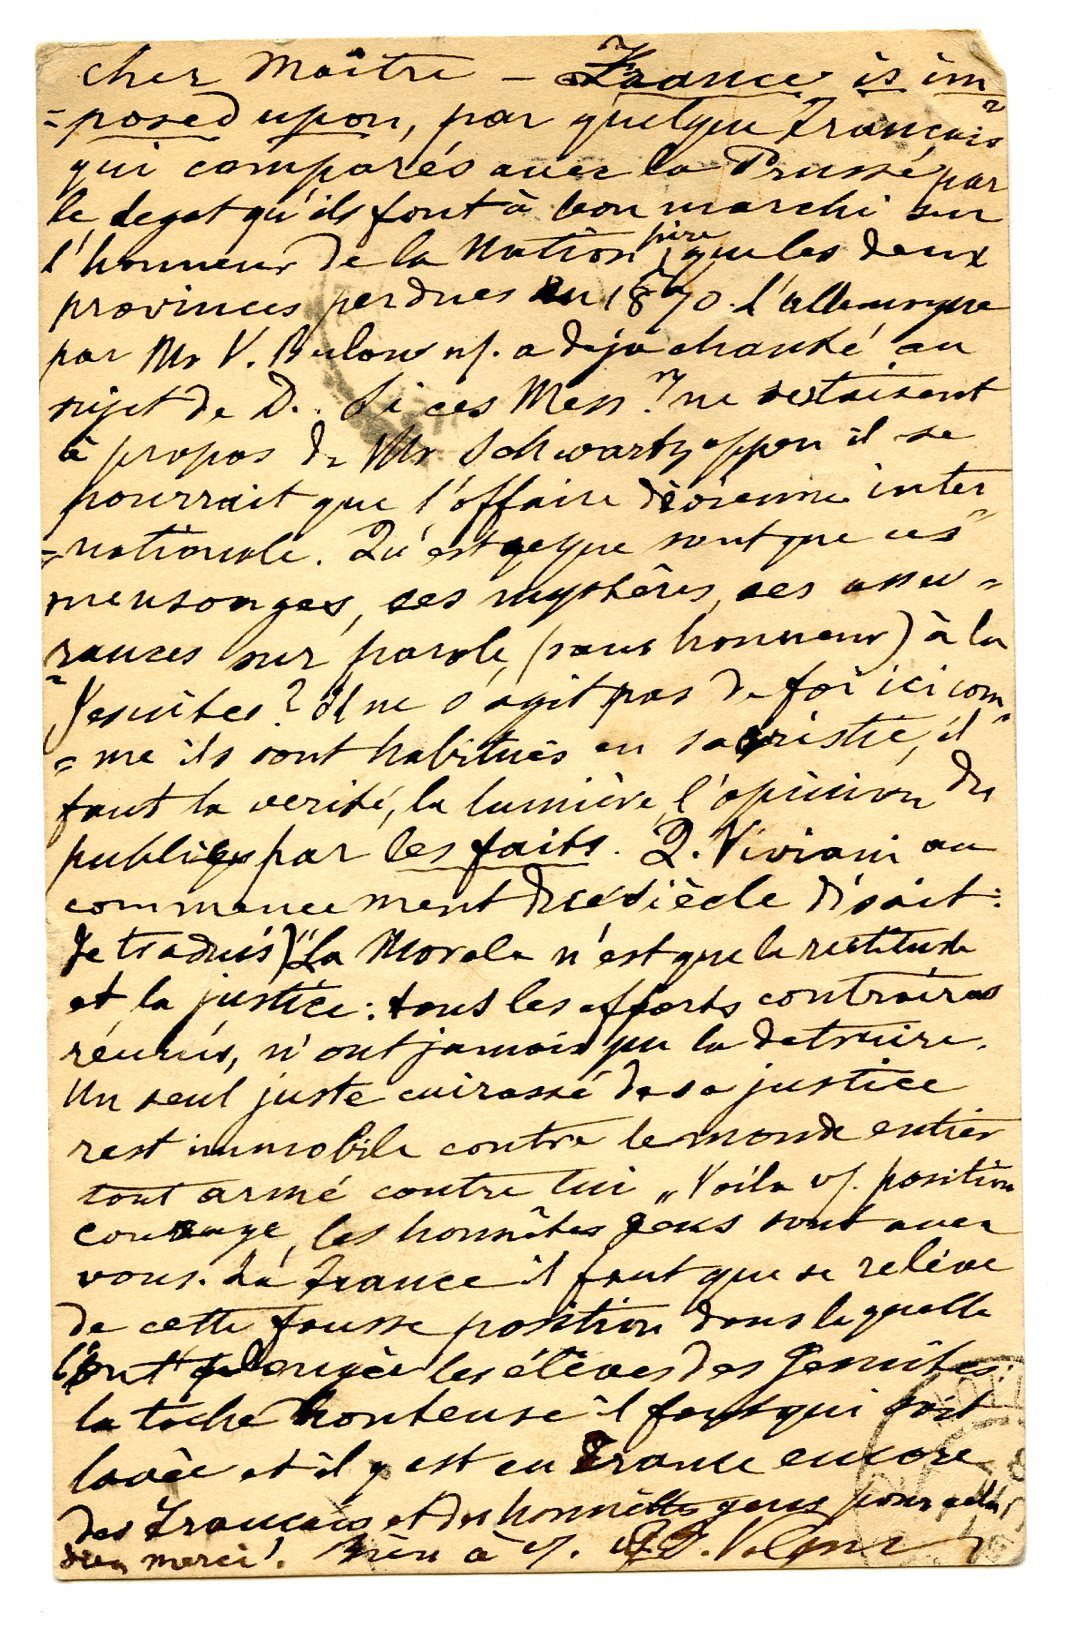 cher Maître – France is im
=posed upon, par quelque Français
qui comparés avec la Prusse par
le degat qu'ils font à bon marchi sur
l'honneur de la Nation pire que les deux
provinces perdues en 1870. l'allemagne
par Mr V. Bulow a deja chanté au
sujet de D.. Si ces Mess.rs ne se taisent
à propos de Mr Schwartzoppen il se
pourrait que l'affaire devienne inter
=nationale. Qu'est que sont que ces
mensonges, ces mystères, ces assu=
rances sur parole, (sans honneur) à la
Jesuites? Il ne s'agit pas de foi ici com=
=me ils sont habitués en sacristie, il
faut la verité, la lumière, l'opinion du
public par les faits. Q. Viviani au
commencement du siècle disait:
Je traduis) "La Morale n'est que la rectitude
et la justice: tous les efforts contraires
réunis, n'ont jamais pu la detruire.
Un seul juste cuirassé de sa justice
rest immobile contre le monde entier
tout armé contre lui „ Voila v/. position
courage, les honnêtes gens sont avec
vous. La France il faut que se relève
de cette fausse position dans laquelle
l'ont les élèves des Jesuites.
la tache honteuse il faut qui soit
lavée et il y est en France encore
des Français et des honnêttes gens pour cela
dieu merci! Bien à v/.